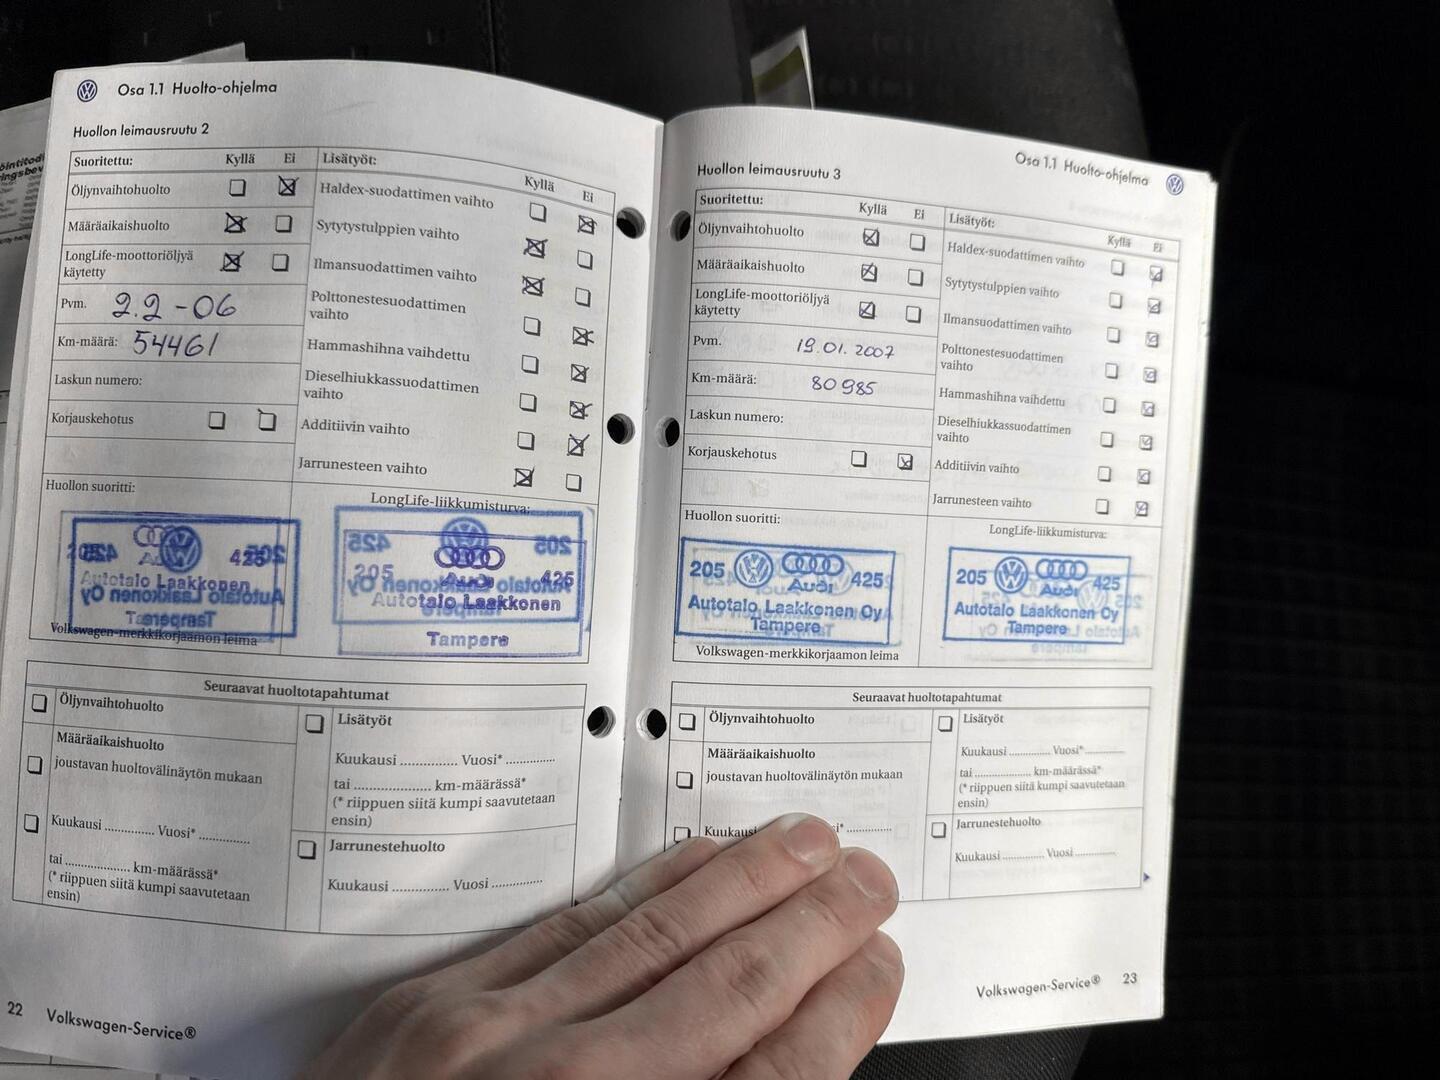 Osa 1.1 Huolto-ohjelma
Huollon leimausruutu 2
Suoritettu: Kyllä Ei
Öljynvaihtohuolto
Määräaikaishuolto
LongLife-moottoriöljyä
käytetty
Pvm. 2.2-06
Km-määrä: 54461
Laskun numero:
Korjauskehotus
Huollon suoritti:
425
Autotalo Laakkonen
Tampere
Volkswagen-merkkikorjaamon leima
Lisätyöt: Kyllä Ei
Haldex-suodattimen vaihto
Sytytystulppien vaihto
Ilmansuodattimen vaihto
Polttonestesuodattimen
vaihto
Hammashihna vaihdettu
Dieselhiukkassuodattimen
vaihto
Additiivin vaihto
Jarrunesteen vaihto
LongLife-liikkumisturva:
205 Audi 425
Autotalo Laakkonen
Tampere
Seuraavat huoltotapahtumat
Öljynvaihtohuolto
Määräaikaishuolto
joustavan huoltovälinäytön mukaan
Kuukausi .............. Vuosi* ..............
tai .................. km-määrässä*
(* riippuen siitä kumpi saavutetaan
ensin)
Lisätyöt
Kuukausi .............. Vuosi* ..............
tai ...................... km-määrässä*
(* riippuen siitä kumpi saavutetaan
ensin)
Jarrunestehuolto
Kuukausi .............. Vuosi ..............
22 Volkswagen-Service®
Osa 1.1 Huolto-ohjelma
Huollon leimausruutu 3
Suoritettu: Kyllä Ei
Öljynvaihtohuolto
Määräaikaishuolto
LongLife-moottoriöljyä
käytetty
Pvm. 19.01.2007
Km-määrä: 80985
Laskun numero:
Korjauskehotus
Huollon suoritti:
205 Audi 425
Autotalo Laakkonen Oy
Tampere
Volkswagen-merkkikorjaamon leima
Lisätyöt: Kyllä Ei
Haldex-suodattimen vaihto
Sytytystulppien vaihto
Ilmansuodattimen vaihto
Polttonestesuodattimen
vaihto
Hammashihna vaihdettu
Dieselhiukkassuodattimen
vaihto
Additiivin vaihto
Jarrunesteen vaihto
LongLife-liikkumisturva:
205 Audi 425
Autotalo Laakkonen Oy
Tampere
Seuraavat huoltotapahtumat
Öljynvaihtohuolto
Määräaikaishuolto
joustavan huoltovälinäytön mukaan
Kuukausi
Lisätyöt
Kuukausi .............. Vuosi* ..............
tai .................... km-määrässä*
(* riippuen siitä kumpi saavutetaan
ensin)
Jarrunestehuolto
Kuukausi .............. Vuosi ..............
Volkswagen-Service® 23